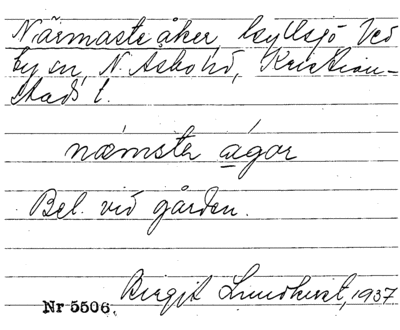 Närmaste åker, Kyllsjö Ved
by sn, N. Åsbo hd, Kristian-
stads l.
næmster ágor
Bel. vid gården.
Birgit Lundkvist, 1937
Nr 5506.